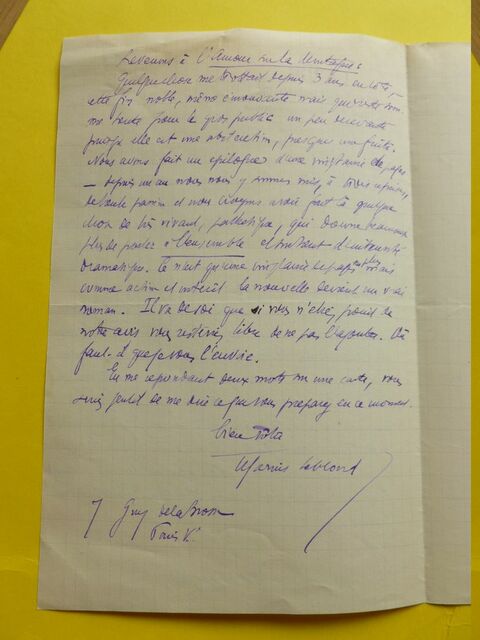 Revenons à l'Amour sur la Montagne :
Quelque chose me restait depuis 3 ans en tête,
cette fin noble, même émouvante mais qui reste
me semble pour le gros public un peu décevante
puisqu'elle est une abstraction, presque une fuite.
Nous avons fait un épilogue d'une vingtaine de pages
— depuis un an nous nous y sommes mis, à reprises,
de toute passion et nous croyons avoir fait là quelque
chose de très vivant, pathétique, qui donne beaucoup
plus de portée à l'ensemble et surtout d'intensité
dramatique. Ce n'est qu'une vingtaine de pages mais
comme action et intérêt la nouvelle devient un vrai
roman. Il va de soi que si vous n'étiez point de
notre avis vous resteriez libre de ne pas l'ajouter.
faut-il que je vous l'envoie.
En me répondant deux mots sur une carte, vous
seriez gentil de me dire ce que vous préparez en ce moment.
bien
Marius Leblond
7 Guy de la Brosse
Paris V.